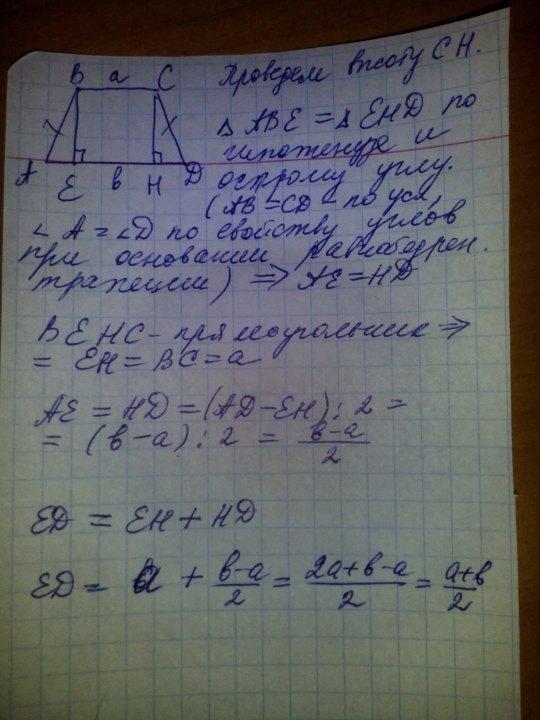 B a C
A E в H D
Проведем высоту CH.
△ ABE = △ EHD по
гипотенузе и
острому углу.
(AB = CD - по усл,
∠ A = ∠D по свойству углов
при основании равнобедрен.
трапеции) ⇒ AE = HD
BEHC - прямоугольник ⇒
= EH = BC = a
AE = HD = (AD - EH) : 2 =
= (в - a) : 2 = в-a/2
ED = EH + HD
ED = a + в-a/2 = 2a+в-a/2 = a+в/2